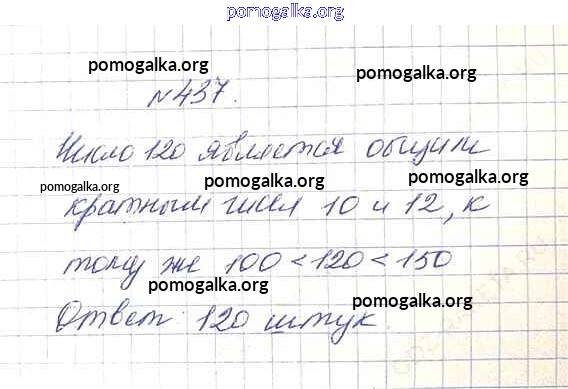 pomogalka.org
pomogalka.org
pomogalka.org
№437.
Число 120 является общим
pomogalka.org
pomogalka.org
pomogalka.org
кратным чисел 10 и 12, к
тому же 100 < 120 < 150
pomogalka.org
pomogalka.org
Ответ: 120 штук.